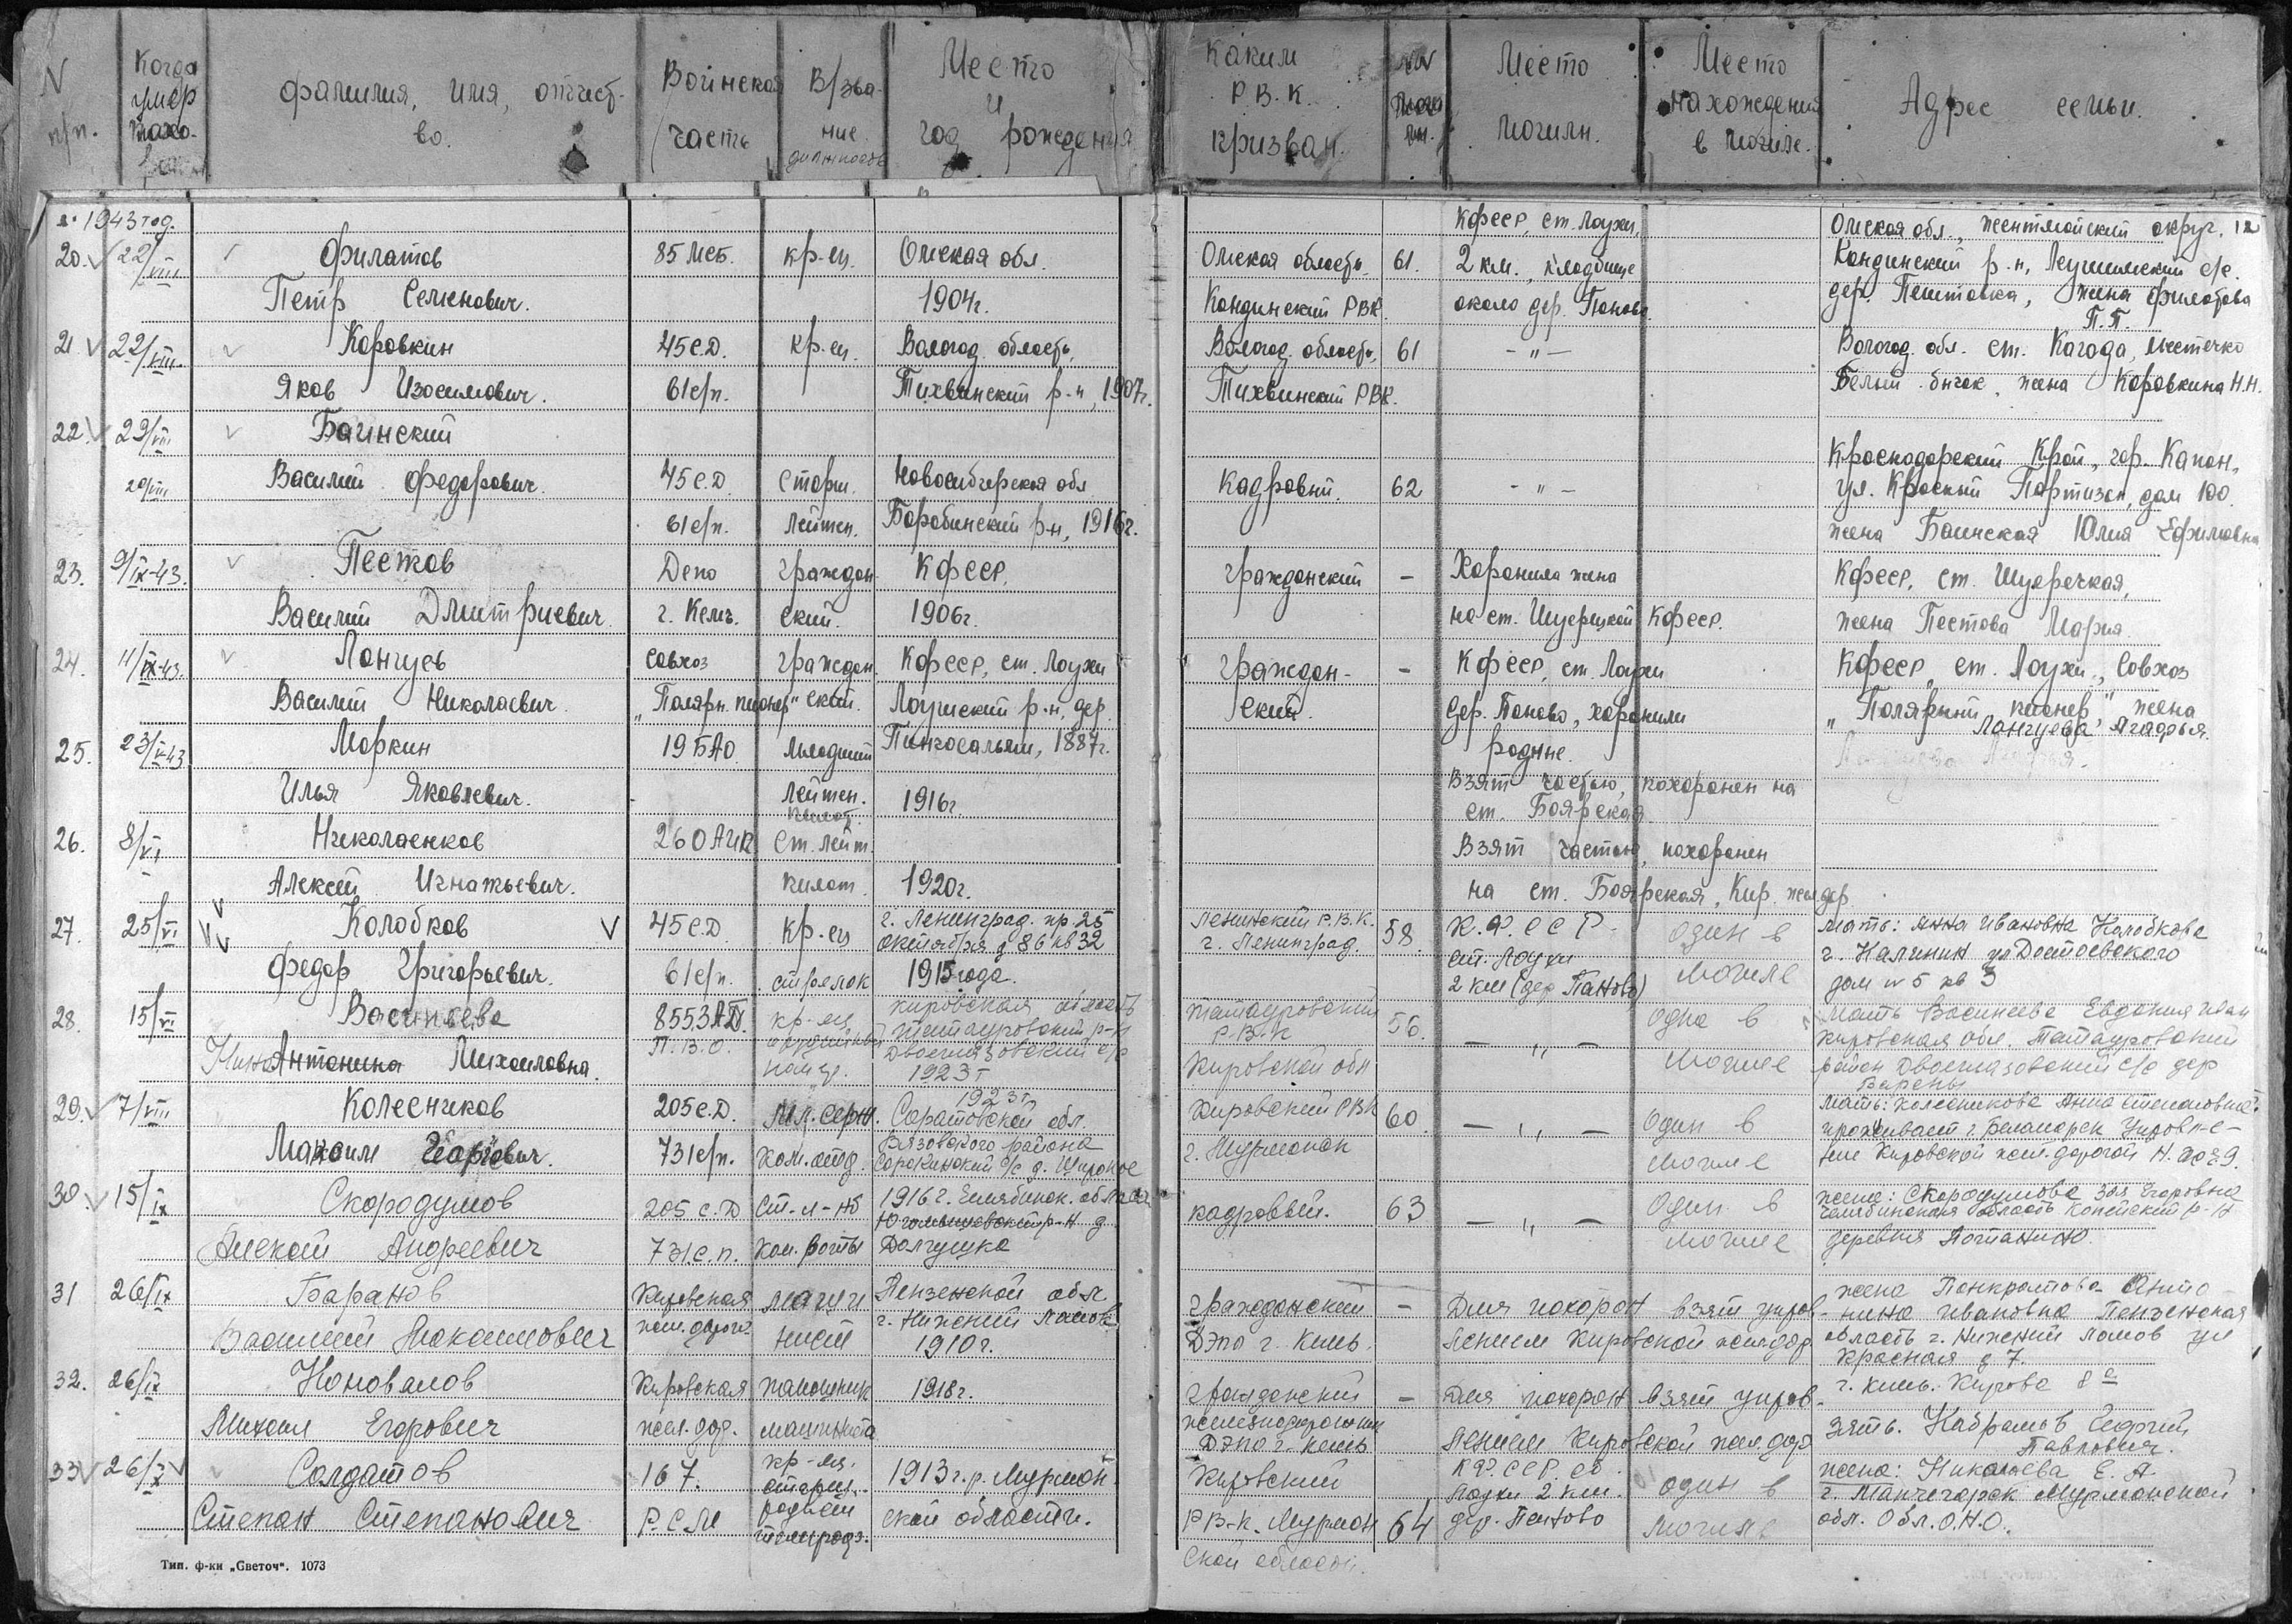 N п/п.
Когда умер
фамилия, имя, отчест-во.
Воинская часть
В/зва-ние должность
Место и год рождения
Каким Р.В.К. призван.
Место могилы.
Место нахождения в могиле.
Адрес семьи.
1943 год.
20. 22/VIII Филатов 85 МСБ. кр-ец. Омская обл. Омская область. 61. КФССР, ст. Лоухи,
Петр Семенович. 1904г. Кондинский РВК. 2 км., кладбище около дер. Паново.
Омская обл., округ. 12
Кондинский р-н, Леушинский с/с.
дер. жена Филатова П.П.
21 22/VIII. Коровкин 45 С.Д. кр-ец. Вологод. область, Вологод. область, 61 -"- Вологод. обл. ст. Кагода, местечко
Яков Изосимович. 61 с/п. Тихвинский р-н, 1907г. Тихвинский РВК. Белый бычок, жена Коровкина Н.Н.
22. 29/VIII Баинский
29/VIII Василий Федорович. 45 С.Д. Старш. Новосибирская обл. Кадровый. 62 -"- Краснодарский Край, гор.
61 с/п. Лейтен. Барабинский р-н, 1916г. ул. Красный Партизан, дом 100.
жена Баинская Юлия Ефимовна
23. 9/IX-43. Пестов Депо граждан КФССР. гражданский - Хоронила жена КФССР, ст. Шуерецкая,
Василий Дмитриевич. г. Кемь. ский. 1906г. на ст. Шуерецкой КФССР. жена Пестова Мария.
24. 11/IX-43. Лангуев совхоз граждан. КФССР, ст. Лоухи граждан- - КФССР, ст. Лоухи КФССР, ст. Лоухи, Совхоз
Василий Николаевич. „Полярн. пионер" ский. Лоухский р-н, дер. ский. дер. Паново, хоронили родные. „Полярный пионер" жена
Пингосальма, 1887г. Лангуева Агафья.
25. 23/ 43 Моркин 19 БАО. младший Взят частью, похоронен на
Илья Яковлевич. лейтен. пилот. 1916г. ст. Боярская
26. 8/VI Николаенков 260 ст. лейт. Взят частью, похоронен
Алексей Игнатьевич. пилот. 1920г. на ст. Боярская, Кир. жел дор.
27. 25/VI Колобков 45 С.Д. кр-ец г. Ленинград. пр. 25 Ленинский Р.В.К. 58. К.Ф.ССР один в мать: Анна Ивановна Колобкова
Федор Григорьевич. 61 с/п. стрелок октября д 86 кв 32 г. Ленинград. ст. Лоухи могиле г. Калинин ул Достоевского
1915 года. 2 км (дер Паново) дом № 5 кв 3
28. 15/VI Васинеева кр-ец кировская область Татауровский 56. -"- одна в мать Васинеева Евдокия Иван
Антонина Михаиловна. П.В.О. Татауровский р-н Р.В.К могиле Кировская обл. Татауровский
1923 г Кировской обл район с/с дер
29. 7/VIII Колесников 205 С.Д. мл. серж. 1923 г. Кировский РВК 60. -"- Один в мать: Колесникова Анна Степановна.
Максим Георгевич. 731 с/п. ком. отд. Саратовской обл. г. Мурманск могиле проживает г. Беломорск Управл-е-
Вязовского района ние Кировской жел. дорогой
Сорокинский с/с д. Широкое
30. 15/IX Скородумов 205 с.д ст-л-нт 1916 г. Челябинск. область кадровый. 63 -"- Один в жена: Скородумова Зоя Егоровна
Алексей Андреевич 731 с.п. Ком. роты р-н д. Долгушка могиле Челябинская область Копейский р-н
деревня Потанино.
31 26/IX Баранов Кировская маши Пензенской обл гражданский - Для похорон взят управ- жена Панкратова Анто
Василий Максимович жел. дорог. нист г. Нижний Ломов Дэпо г. Кемь. лением Кировской жел. дор. нина Ивановна Пензенская
1910 г. область г. Нижний Ломов ул
Красная д 7.
32. 26/IX Коновалов Кировская помощник 1918 г. гражданский - Для похорон взят управ- г. Кемь. Кирова 8а
Михаил Егорович жел. дор. машиниста железнодорожник лением Кировской жел. дор зять. Георгий
Дэпо г. Кемь Павлович.
33 26/X Солдатов 167. кр-ец. 1913 г. р. Мурман- Кировский К.Ф.ССР. ст. один в жена: Николаева Е. А.
Степан Степанович Р.С.М ской области. Р.В.К. Мурман 64 Лоухи 2 км. могиле г. Мончегорск Мурманской
ской области. дер. Паново обл. Обл.О.Н.О.
Тип. ф-ки „Светоч". 1073